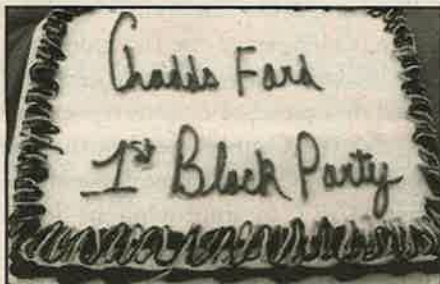 Chadds Ford
1st Block Party